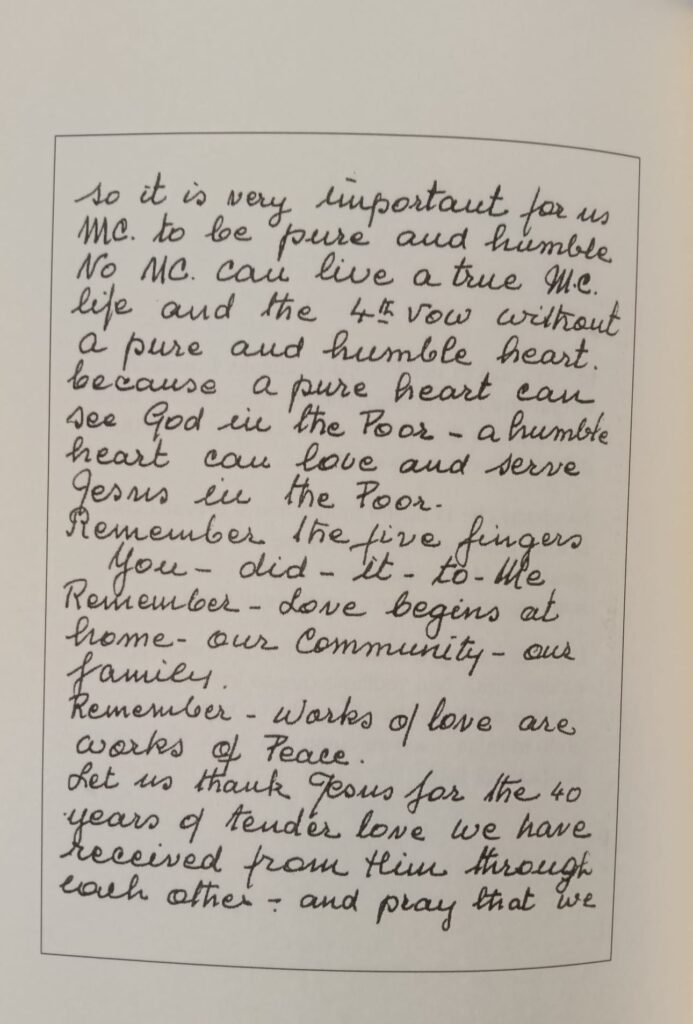 so it is very important for us
MC. to be pure and humble
No MC. can live a true M.C.
life and the 4th vow without
a pure and humble heart.
because a pure heart can
see God in the Poor - a humble
heart can love and serve
Jesus in the Poor.
Remember the five fingers
You - did - it - to - Me
Remember - Love begins at
home - our Community - our
family.
Remember - works of love are
works of Peace.
Let us thank Jesus for the 40
years of tender love we have
received from Him through
each other - and pray that we